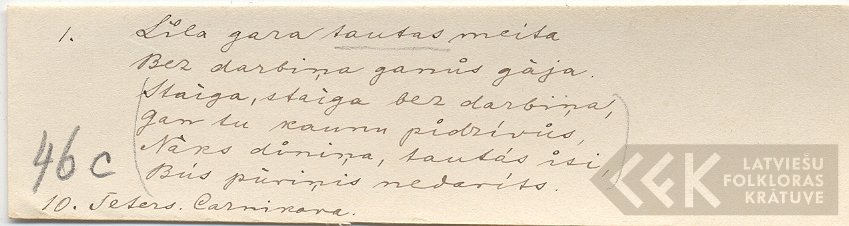 1. Lîla gara tautas meita
Bez darbiņa ganůs gāja.
Stàiga, stàiga bez darbiņa,
Gan tu kaunu pìdzívůs,
Nāks důniņa, tautās ìsi,
Bús pūriņis nedaríts.
46c
10. Teters. Carnikova.
LATVIEŠU
FOLKLORAS
KRĀTUVE